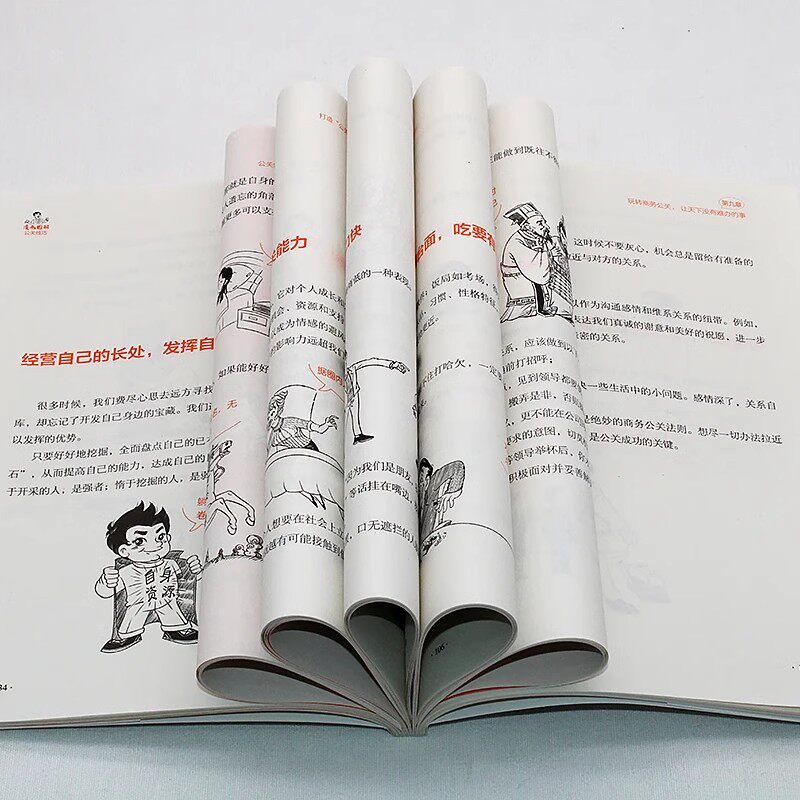 漫画图解
公关技巧
经营自己的长处，发挥自
很多时候，我们费尽心思去远方寻找
库，却忘记了开发自己身边的宝藏。我们
以发挥的优势。
只要好好地挖掘，全面盘点自己的
石”，从而提高自己的能力，达成自己的
于开采的人，是强者；惰于挖掘的人，是
自身
资源
就是自身的
人遗忘的角落
更多可以支
如果能好好
无
能力
它对个人成长和
机会、资源和支持
以成为情感的
的影响力远超我们
据图内
人想要在社会上立
越有可能接触到
快
低的一种表现
因为我们是朋友
等话挂在嘴边
，口无遮拦的人
面，吃要有
，饭局如考场，
、习惯、性格特征
住打哈欠，一定
·106·
能做到既往不
关系，应该做到
前打招呼；
，见到领导都要
搬弄是非，否则
，更不能在公
要求的意图，切莫
等领导举杯后，你
积极面对并妥善解
第九章
玩转商务公关，让天下没有难办的事
这时候不要灰心，机会总是留给有准备的
近与对方的关系。
以作为沟通感情和维系关系的纽带。例如，
表达我们真诚的谢意和美好的祝愿，进一步
密的关系。
决一些生活中的小问题。感情深了，关系自
是绝妙的商务公关法则。想尽一切办法拉近
是公关成功的关键。